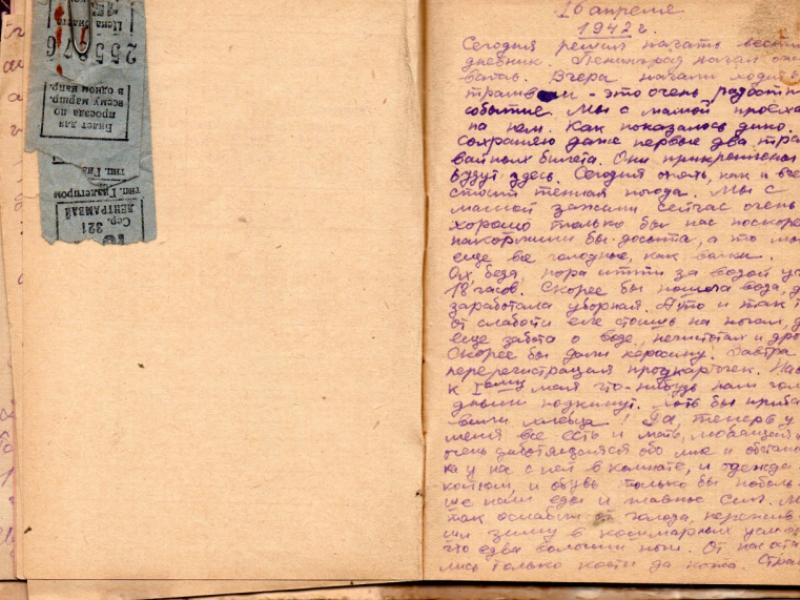 Цена билета
255876
Билет для
проезда по
всему маршр.
в одном напр.
тип. Гиз
тип. Гизлегпром
ЛЕНТРАМВАЙ
Сер. 321
16 апреля
1942 г.
Сегодня решил начать вести
дневник. Ленинград начал ожи
вать. Вчера начали ходить
трамваи - это очень радостн
событие. Мы с мамой проеха
на нем. Как показалось дико.
Сохраняю даже первые два тра
вайных билета. Они прикреплены
будут здесь. Сегодня опять, как и вче
стоит теплая погода. Мы с
мамой зажили сейчас очень
хорошо только бы нас поскоре
накормили бы досыта, а то мы
еще все голодные, как волки.
Ох, беда, пора итти за водой уж
18 часов. Скорее бы пошла вода, д
заработала уборная. А то и так
от слабости еле стоишь на ногах, д
еще забота о воде, кипятком и дро
Скорее бы дали керосину. Завтра
перерегистрация продкарточек. На
к 1ому мая что-нибудь нам голо
дным подкинут. Хоть бы приба
вили хлебца! Да, теперь у
меня все есть и мать, любящая и
очень заботящаяся обо мне и обстано
ка у нас с ней в комнате, и одежда
костюм, и обувь только бы поболь
ше нам еды и главное сил. М
так ослабли от голода, пережив
ши зиму в кошмарных услов
что едва волочим ноги. От нас оста
лись только кости да кожа. Стра